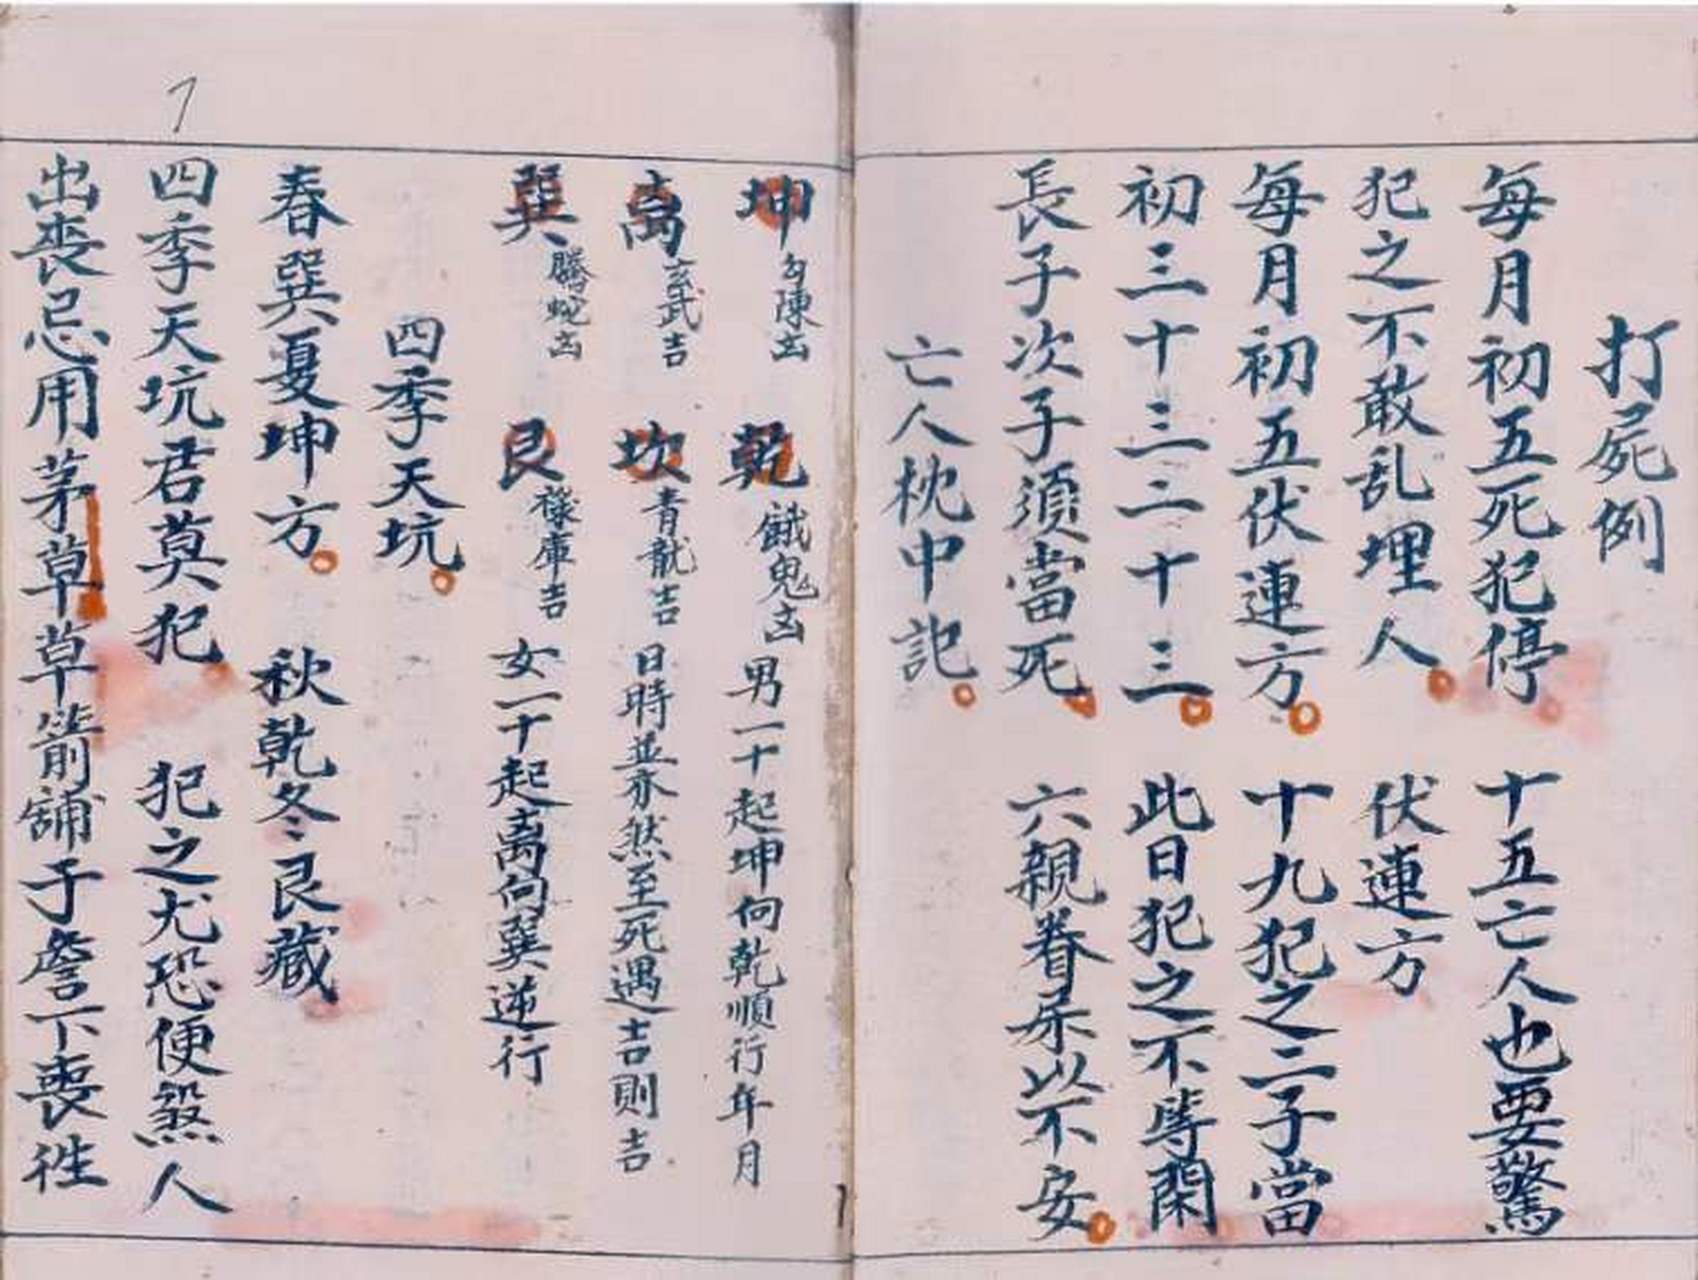 打屍例
每月初五死犯停 十五亡人也要驚
犯之不敢乱埋人 伏連方
每月初五伏連方 十九犯之二子當
初三十三二十三 此日犯之不等閑
長子次子須當死 六親眷属以不安
亡人枕中記
坤 勾陳凶 乾 餓鬼凶 男一十起坤向乾順行年月
离 玄武吉 坎 青龍吉 日時並亦然至死遇吉則吉
巽 騰蛇凶 艮 祿庫吉 女一十起离向巽逆行
四季天坑
春巽夏坤方 秋乾冬艮藏
四季天坑君莫犯 犯之尤恐便煞人
出丧忌用茅草草箭舖子詹下丧徃
7